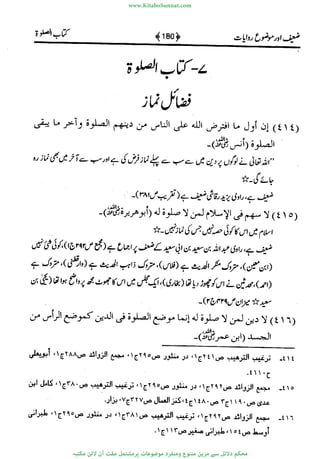 www.KitaboSunnat.com
ضعیف اور موضوع روایات ﴿180﴾ کتاب الصلوة
٧- کتاب الصلوة
فضائل نماز
(٤١٤) إن أول ما افترض الله على الناس من دينهم الصلوة وآخر ما يبقى
الصلوة (أنس ؓ)۔
”اللہ تعالی نے لوگوں پر دین میں سے سب سے پہلے نماز فرض کی ہے اور سب سے آخر میں بھی نماز رہ
جائے گی۔☆
ضعیف ہے، راوی یزید رقاشی ضعیف ہے (تقریب ص٣٨١)۔
(٤١٥) لا سهم في الإسلام لمن لا صلوة له (أبو هريرة ؓ)۔
اسلام میں اس کا کوئی حصہ نہیں جس کی نماز نہیں۔☆
ضعیف ہے، راوی عبد اللہ بن سعید بن ابی سعید کے ضعف پر اجماع ہے (مجمع ص٢٩٢ج١)، کوئی شئی نہیں
(ابن معین)، متروک منکر الحدیث ہے (فلاس)، متروک ذاہب الحدیث ہے (دارقطنی)، متروک ہے
سعید☆ میزان ص٤٢٩ج٢)۔
(٤١٦) لا دين لمن لا صلوة له إنما موضع الصلوة في الدين كموضع الرأس من
الجسد (ابن عمر ؓ)۔
٤١٤۔ ترغیب الترهیب ص٢٤١ج١، در منثور ص٢٩٥ج١، مجمع الزوائد ص٢٨٨ج١، أبویعلی
ح٤١١٠۔
٤١٥۔ مجمع الزوائد ص٢٩٢ج١، در منثور ص٢٩٥ج١، ترغیب الترهیب ص٣٨٠ج١، کامل ابن
عدی ص١١٩ج٣ ص١٤٨٠ج٤، کنز العمال ص٣٢٧ج٧، بزار۔
٤١٦۔ مجمع الزوائد ص٢٩٢ج١، ترغیب الترهیب ص٣٨١ج١، در منثور ص٢٩٥ج١، طبرانی
أوسط ص١٥٤ج٣، طبرانی صغیر ص١١٣ج١۔
محکم دلائل سے مزین متنوع ومنفرد موضوعات پر مشتمل مفت آن لائن مکتبہ